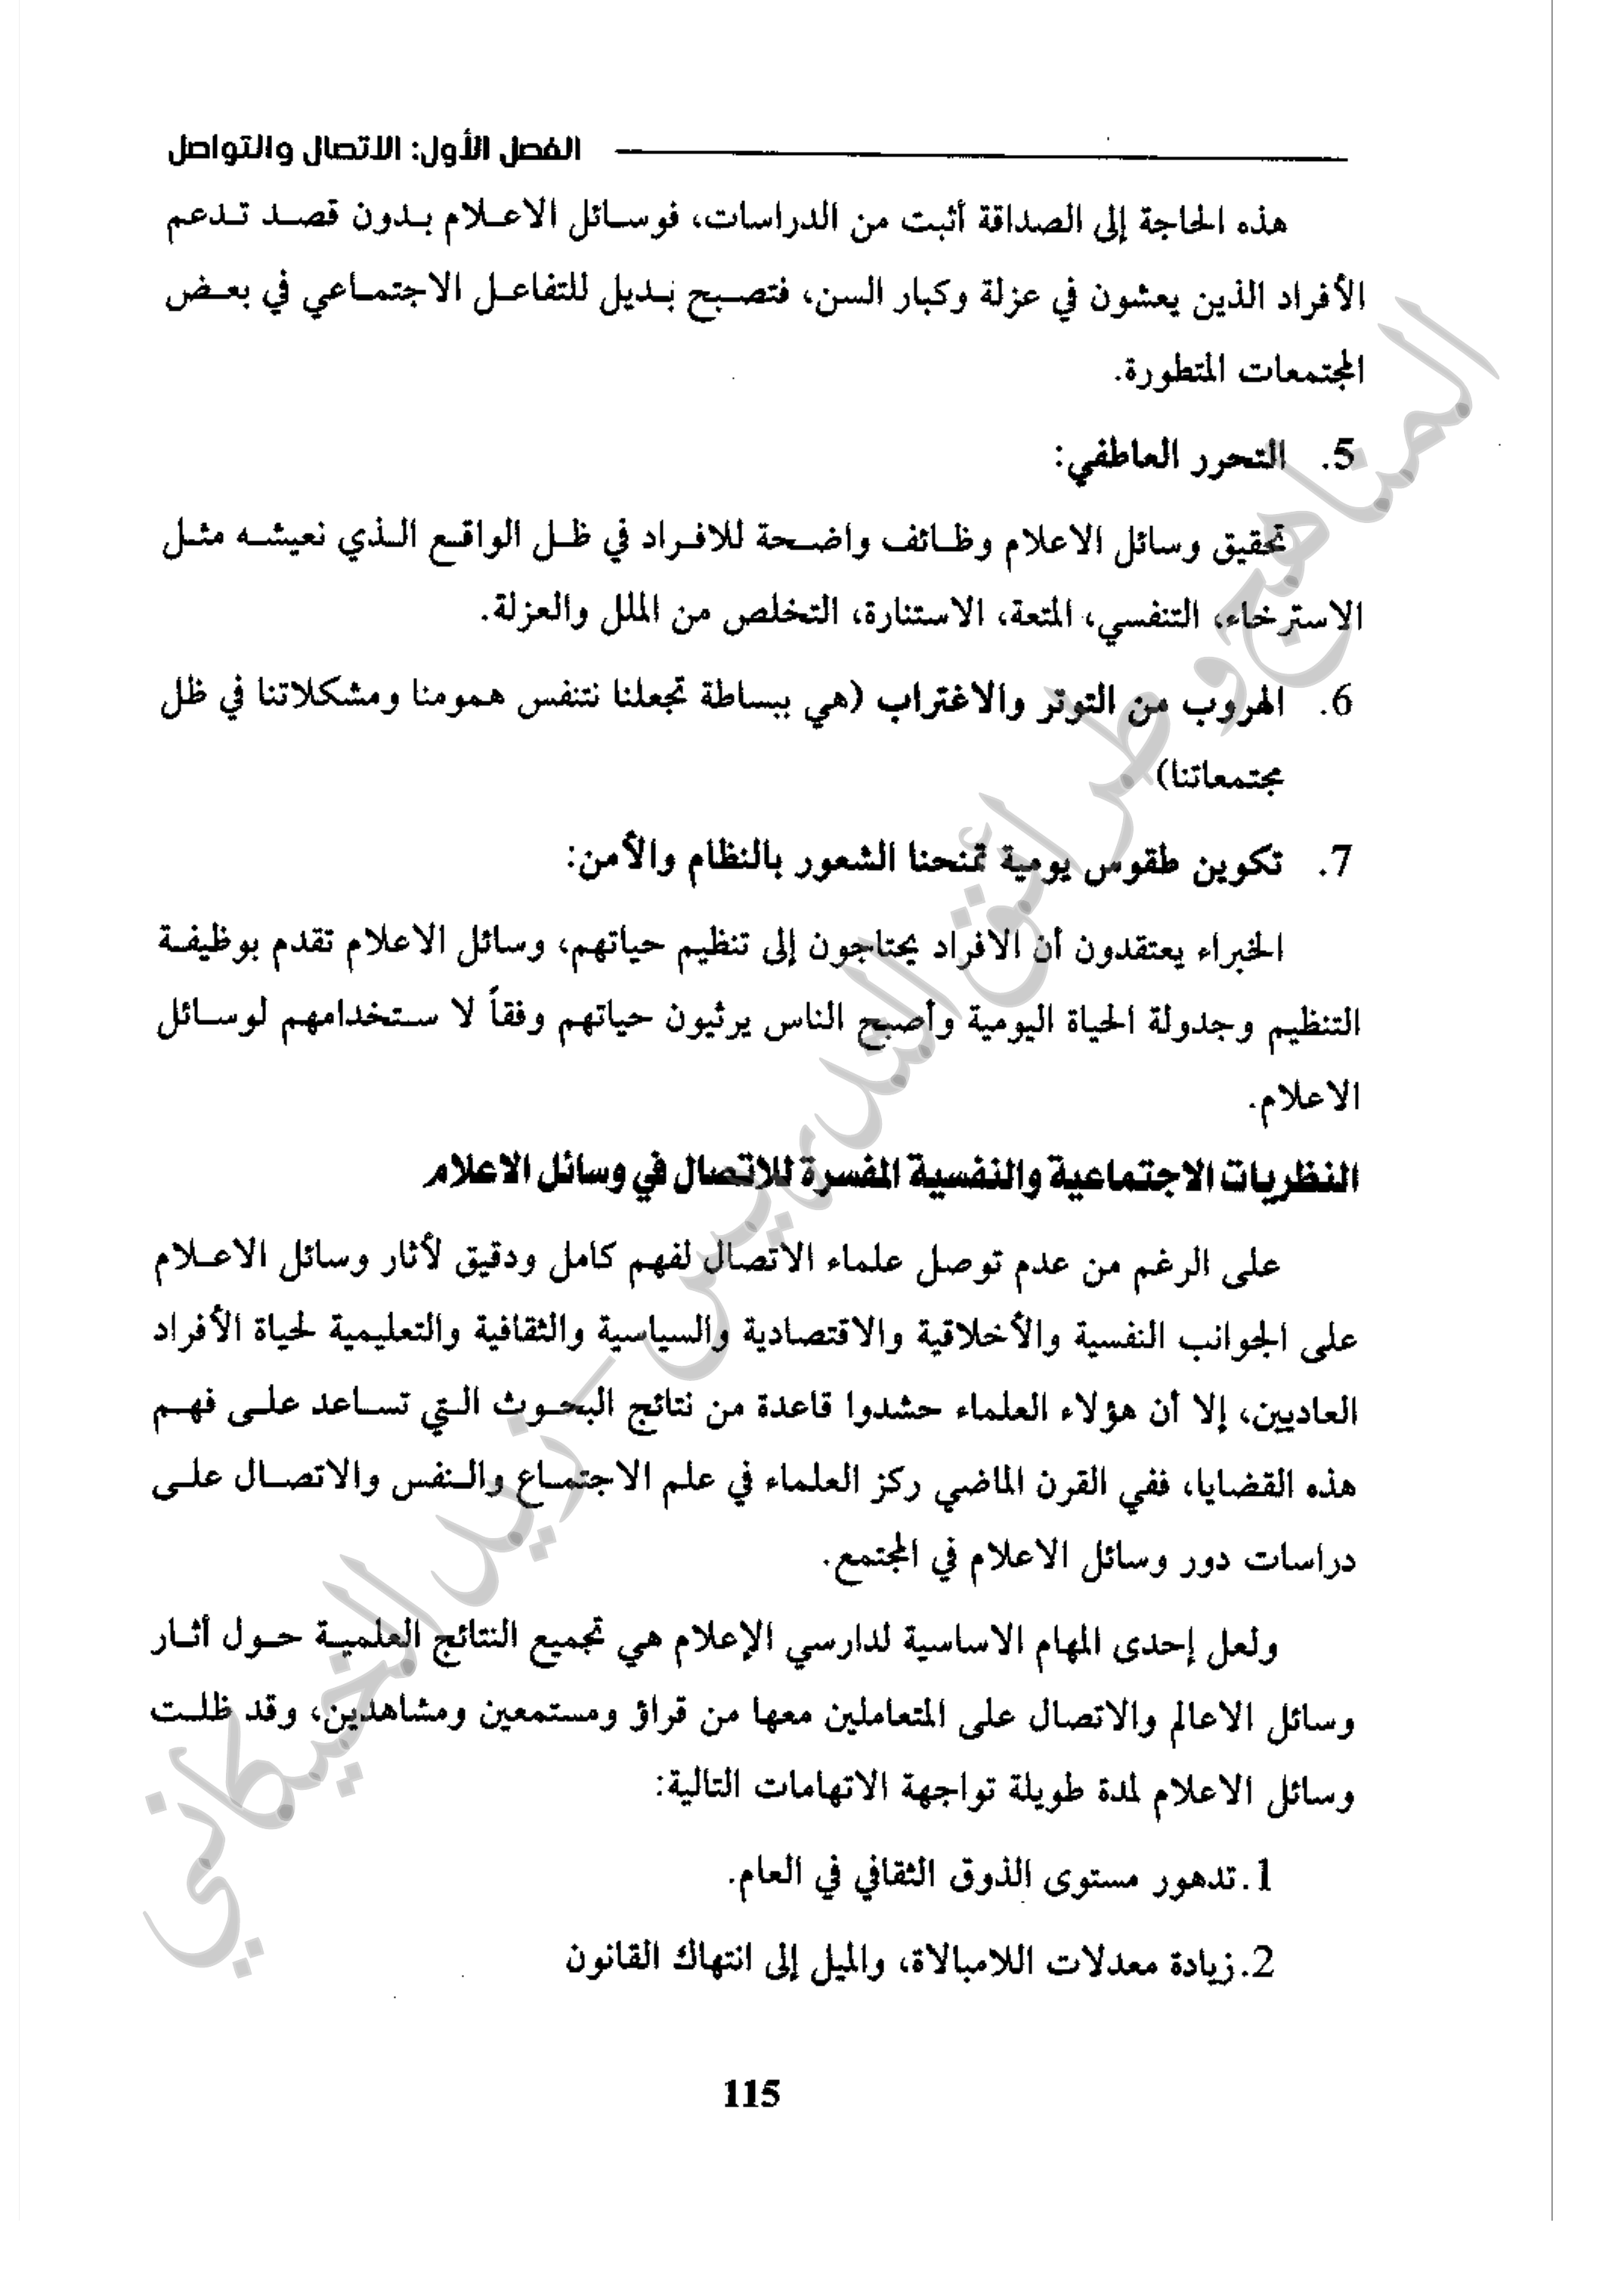 الفصل الأول: الاتصال والتواصل
هذه الحاجة إلى الصداقة أثبت من الدراسات، فوسائل الاعلام بدون قصد تدعم
الأفراد الذين يعشون في عزلة وكبار السن، فتصبح بديل للتفاعل الاجتماعي في بعض
المجتمعات المتطورة.
5. التحرر العاطفي:
تحقيق وسائل الاعلام وظائف واضحة للافراد في ظل الواقع الذي نعيشه مثل
الاسترخاء، التنفسي، المتعة، الاستنارة، التخلص من الملل والعزلة.
6. الهروب من التوتر والاغتراب (هي ببساطة تجعلنا نتنفس همومنا ومشكلاتنا في ظل
مجتمعاتنا)
7. تكوين طقوس يومية تمنحنا الشعور بالنظام والأمن:
الخبراء يعتقدون أن الافراد يحتاجون إلى تنظيم حياتهم، وسائل الاعلام تقدم بوظيفة
التنظيم وجدولة الحياة اليومية وأصبح الناس يرثيون حياتهم وفقاً لا ستخدامهم لوسائل
الاعلام.
النظريات الاجتماعية والنفسية المفسرة للاتصال في وسائل الاعلام
على الرغم من عدم توصل علماء الاتصال لفهم كامل ودقيق لأثار وسائل الاعلام
على الجوانب النفسية والأخلاقية والاقتصادية والسياسية والثقافية والتعليمية لحياة الأفراد
العاديين، إلا أن هؤلاء العلماء حشدوا قاعدة من نتائج البحوث التي تساعد على فهم
هذه القضايا، ففي القرن الماضي ركز العلماء في علم الاجتماع والنفس والاتصال على
دراسات دور وسائل الاعلام في المجتمع.
ولعل إحدى المهام الاساسية لدارسي الإعلام هي تجميع النتائج العلمية حول أثار
وسائل الاعالم والاتصال على المتعاملين معها من قراؤ ومستمعين ومشاهدين، وقد ظلت
وسائل الاعلام لمدة طويلة تواجهة الاتهامات التالية:
1. تدهور مستوى الذوق الثقافي في العام.
2. زيادة معدلات اللامبالاة، والميل إلى انتهاك القانون
115
المناهج وطرائق التدريس - زيد الخيكاني